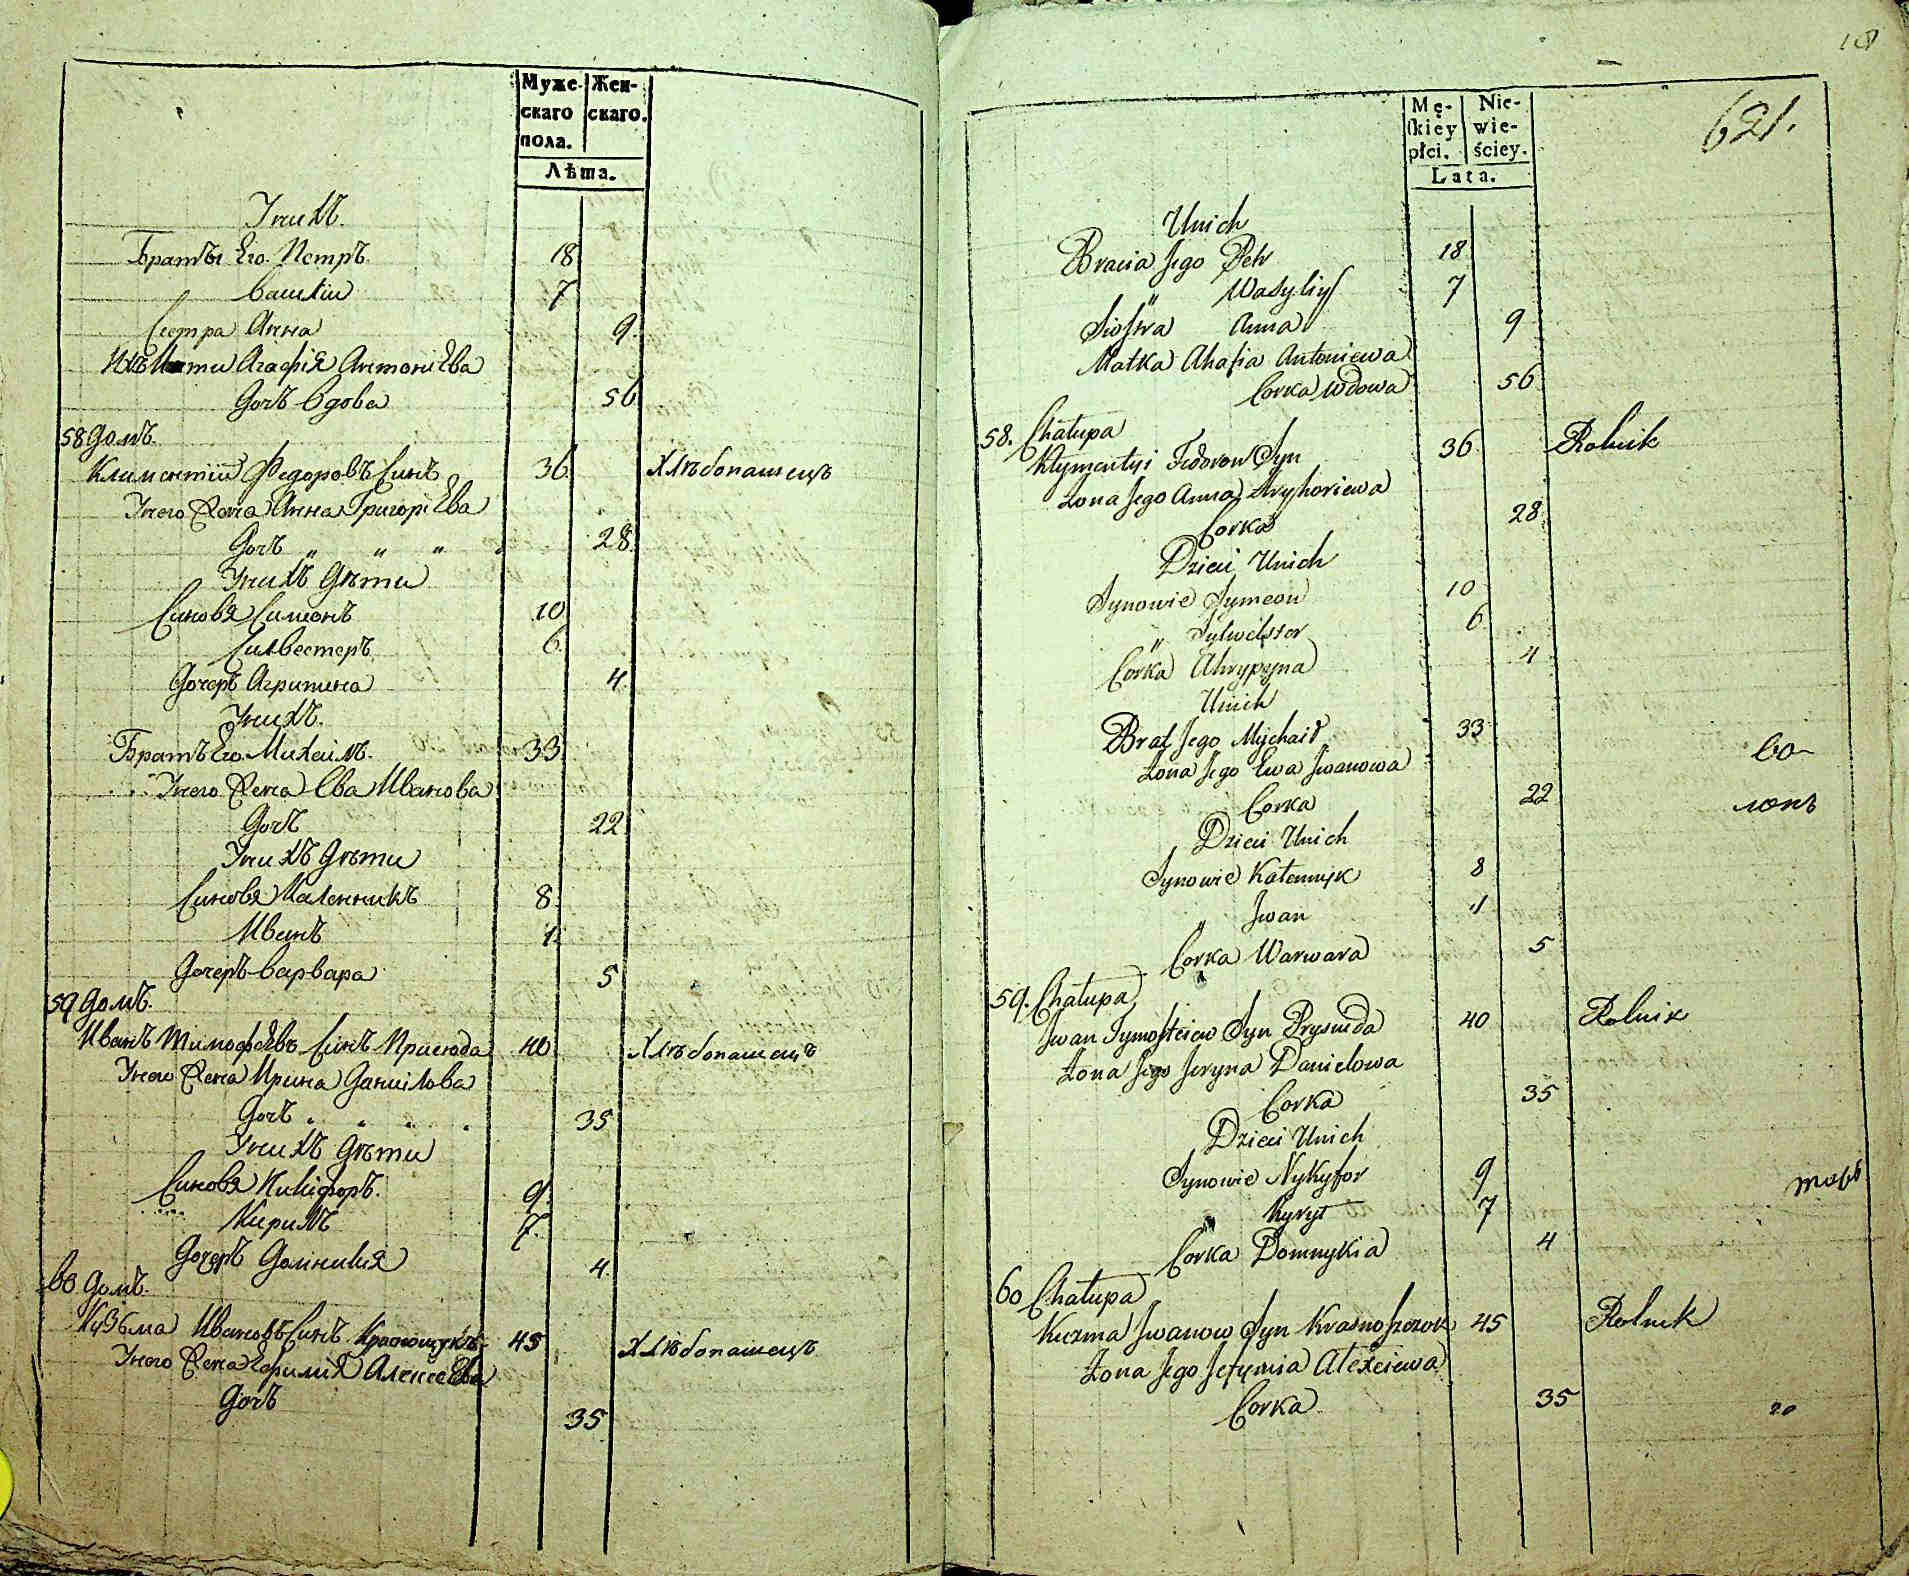 Муже-
скаго
пола.
Жен-
скаго.
Лѣта.
Унихъ.
Братъы Его. Петръ. 18
Василiи 7
Сестра Анна 9.
Ихъ Мати Агафiя Антонiева
Дочъ Вдова 56
58 Домъ.
Климентiи Федоровъ Синъ 36. Хлѣбопашецъ
Унего Жена Анна Григорiева
Дочъ „ „ „ 28.
Унихъ Дѣти
Синовя Симеонъ 10
Силвестеръ 6.
Дочеръ Агрипина 4.
Унихъ.
Братъ Его. Михаилъ. 33.
Унего Жена Ева Иванова
Дочъ 22
Унихъ Дѣти
Синовя Каленникъ 8.
Иванъ 1.
Дочеръ Варвара 5
59 Домъ.
Иванъ Тимофѣевъ Синъ Присюда 40 Хлѣбопашецъ
Унего Жена Ирина Данiилова
Дочъ „ „ „ 35
Унихъ Дѣти
Синовя Никiфоръ. 9.
Кирилъ 7.
Дочеръ Домникия 4.
60 Домъ.
Кузьма Ивановъ Синъ 45 Хлѣбопашецъ
Унего Жена Ефимiя Алексеева
Дочъ 35
621.
Mę-
skiey
płci.
Nie-
wie-
ściey.
Lata.
Unich
Bracia Jego Petr 18
„ Wasyliy 7
Siostra Anna 9
Matka Ahafia Antoniewa
Corka Wdowa 56
58. Chałupa
Kłymentyi Fedorow Syn 36 Rolnik
Żona Jego Anna Hryhoriewa
Corka 28
Dzieci Unich
Synowie Symeon 10
„ Sylwester 6
Corka Ahrypyna 4
Unich
Brat Jego Mychaił 33
Żona Jego Ewa Jwanowa
во-
Corka 22
локъ
Dzieci Unich
Synowie Kałennyk 8
„ Jwan 1
Corka Warwara 5
59. Chałupa
Jwan Tymofieiew Syn Prysiuda 40 Rolnik
Żona Jego Jeryna Daniełowa
Corka 35
Dzieci Unich
Synowie Nykyfor 9
„ Kyrył 7
Corka Domnykia 4
60 Chałupa
Kuzma Jwanow Syn Krasnoszczok 45 Rolnik
Żona Jego Jefymia Ałexeiewa
Corka 35